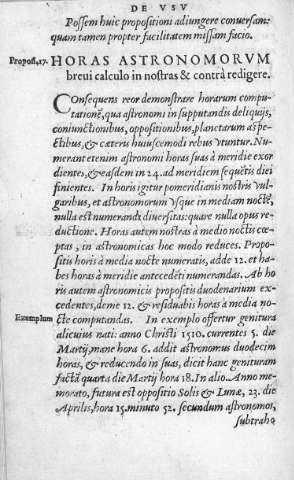 DE VSV
Possem huic propositioni adiungere conuersam:
quam tamen propter facilitatem missam facio.
Propos.17. HORAS ASTRONOMORVM
breui calculo in nostras & contrà redigere.
Consequens reor demonstrare horarum compu-
tationē, qua astronomi in supputandis deliquijs,
coniunctionibus, oppositionibus, planetarum aspe-
ctibus, & cæteris huiuscemodi rebus vtuntur. Nu-
merant etenim astronomi horas suas à meridie exor
dientes, & easdem in 24. ad meridiem sequētis diei
finientes. In horis igitur pomeridianis nostris vul-
garibus, et astronomorum vsque in mediam noctē,
nulla est numerandi diuersitas: quare nulla opus re-
ductione. Horas autem nostras à medio noctis cœ-
ptas, in astronomicas hoc modo reduces. Propo-
sitis horis à media nocte numeratis, adde 12. et ha-
bes horas à meridie antecedēti numerandas. Ab ho
ris autem astronomicis propositis duodenarium ex-
cedentes, deme 12. & residuabis horas à media no-
Exemplum cte computandas. In exemplo offertur genitura
alicuius nati: anno Christi 1510. currentes 5. die
Martij, mane hora 6. addit astronomus duodecim
horas, & reducendo in suas, dicit hanc genituram
factā quarta die Martij hora 18. In alio. Anno me-
morato, futura est oppositio Solis & Lunæ, 23. die
Aprilis, hora 15. minuto 52. secundum astronomos,
subtraho